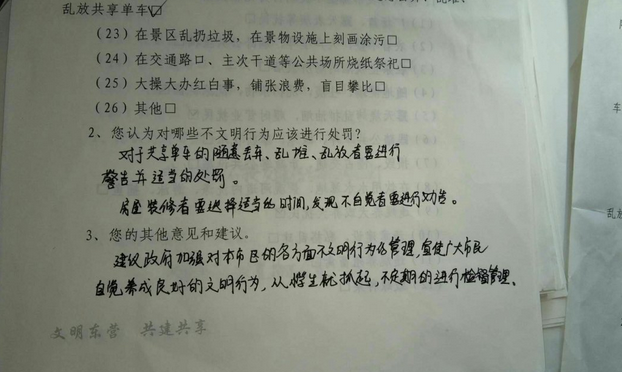 乱放共享单车☑
(23) 在景区乱扔垃圾，在景物设施上刻画涂污□
(24) 在交通路口、主次干道等公共场所烧纸祭祀□
(25) 大操大办红白事，铺张浪费，盲目攀比□
(26) 其他□
2、您认为对哪些不文明行为应该进行处罚？
对于共享单车的随意丢弃、乱堆、乱放者要进行
警告并适当的处罚。
房屋装修者要选择适当的时间，发现不自觉者要进行劝告。
3、您的其他意见和建议。
建议政府加强对本市民的各方面不文明行为的管理，宣使广大市民
自觉养成良好的文明行为，从学生就抓起，不定期的进行检督管理、
文明东营 共建共享